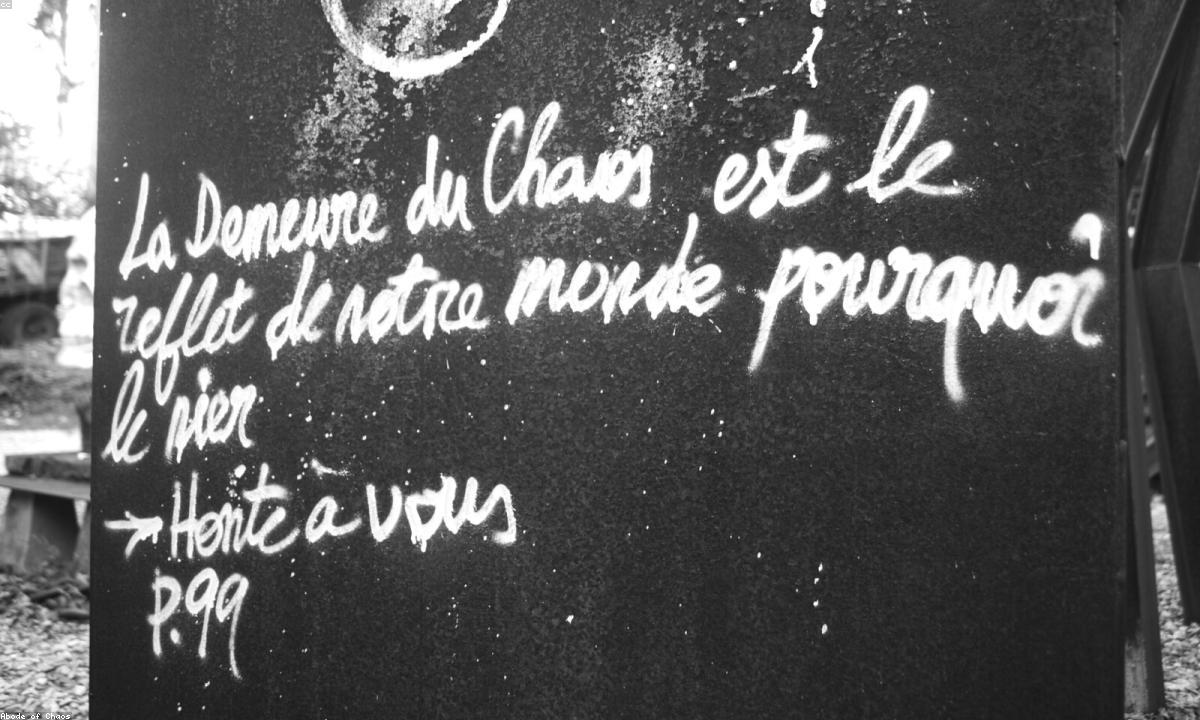 cc
La Demeure du Chaos est le
reflet de notre monde pourquoi
le nier
→ Honte à vous
P.99
Abode of Chaos